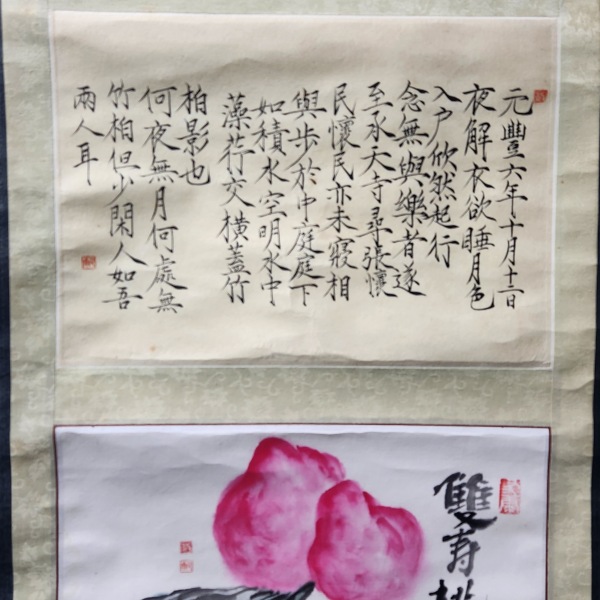 元豐六年十月十二日
夜解衣欲睡月色
入户欣然起行
念無與樂者遂
至承天寺尋張懷
民懷民亦未寢相
與步於中庭庭下
如積水空明水中
藻荇交橫蓋竹
柏影也
何夜無月何處無
竹柏但少閑人如吾
兩人耳
雙壽桃